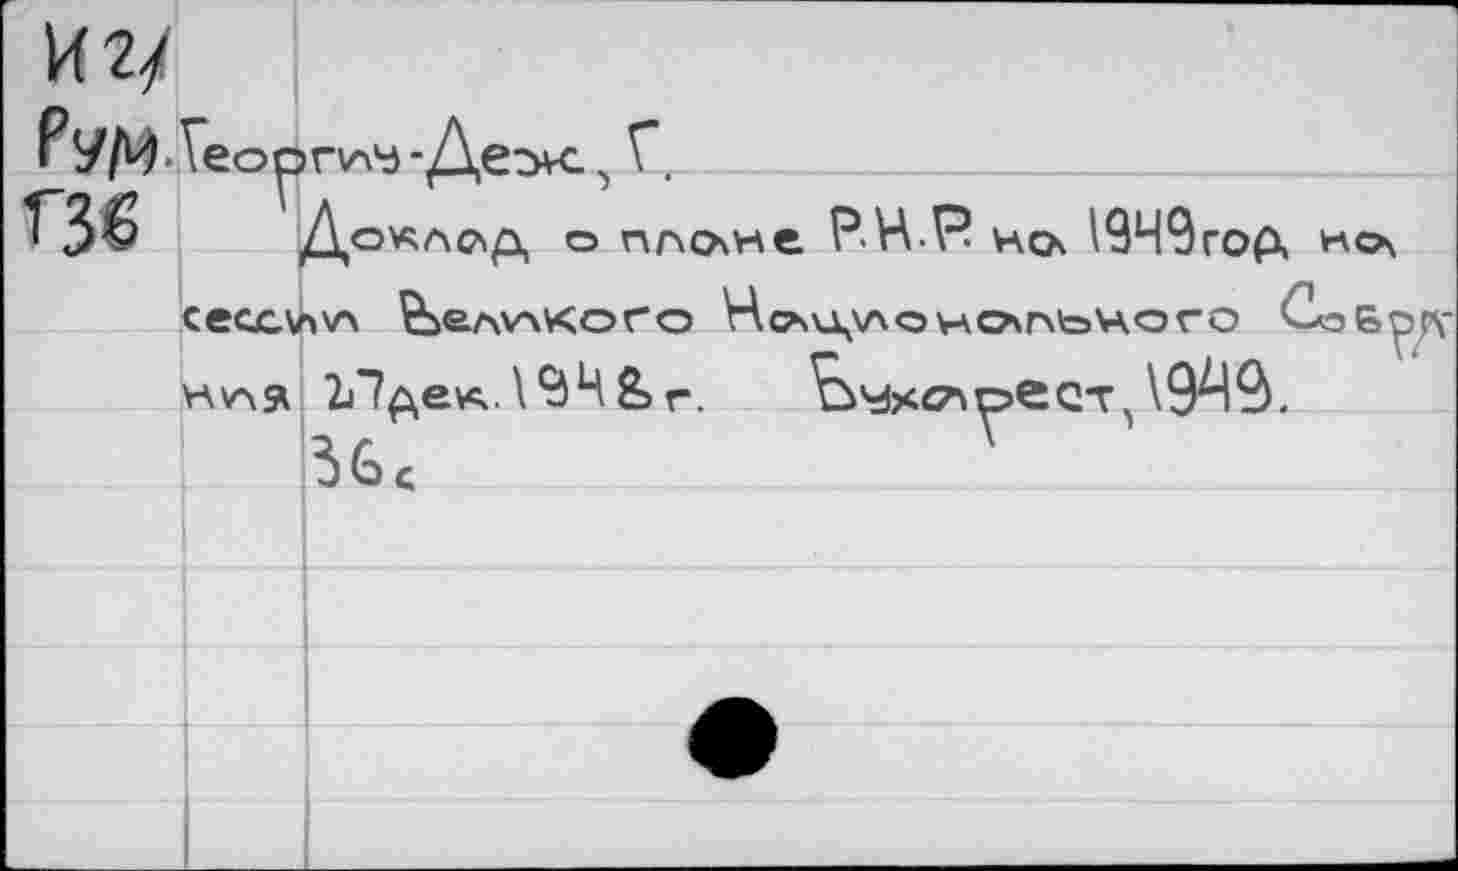 И2/
Рум. Георгиу-Деж, Г.
Г36 Доклад о плане Р.Н.Р. на 1949год на
сессии Великого Национального Собра-
ния 27дек. 1948г. Бухарест, 1949.
36с